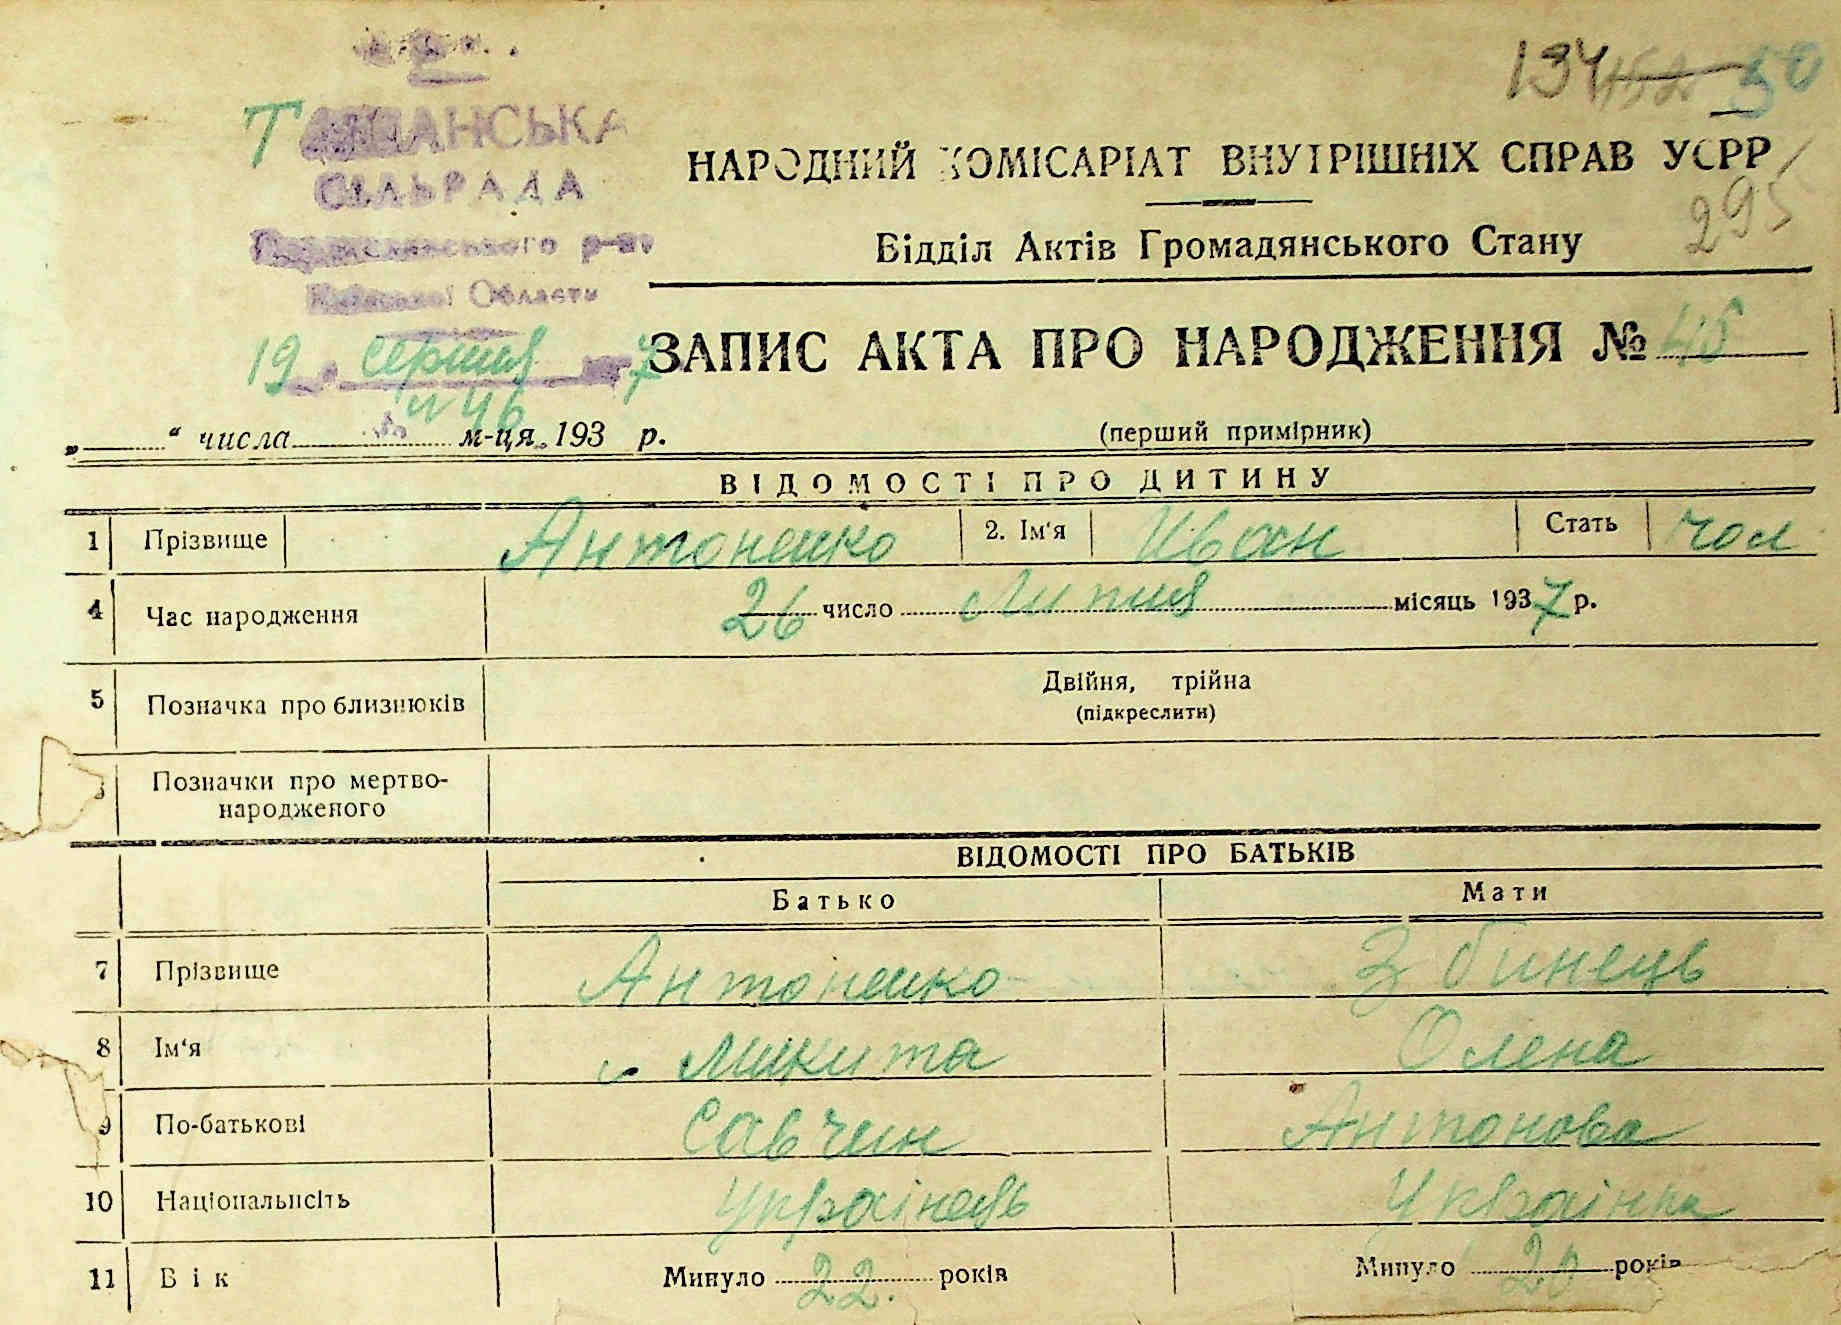 134 152 50
Т АНСЬКА
СІЛЬРАДА
р-ну
Київської Области
НАРОДНИЙ КОМІСАРІАТ ВНУТРІШНІХ СПРАВ УСРР
295
Відділ Актів Громадянського Стану
19 серпня 7
ЗАПИС АКТА ПРО НАРОДЖЕННЯ № 45
№ 46
„ “ числа м-ця 193 р.
(перший примірник)
ВІДОМОСТІ ПРО ДИТИНУ
1 Прізвище Антоненко 2. Ім'я Иван Стать чол
4 Час народження 26 число Липня місяць 1937 р.
5 Позначка про близнюків Двійня, трійна
(підкреслити)
Позначки про мертво-
народженого
ВІДОМОСТІ ПРО БАТЬКІВ
Батько Мати
7 Прізвище Антоненко Збинець
8 Ім'я Микита Олена
9 По-батькові Савчин Антонова
10 Національність Українець Українка
11 Вік Минуло 22. років Минуло 20 років